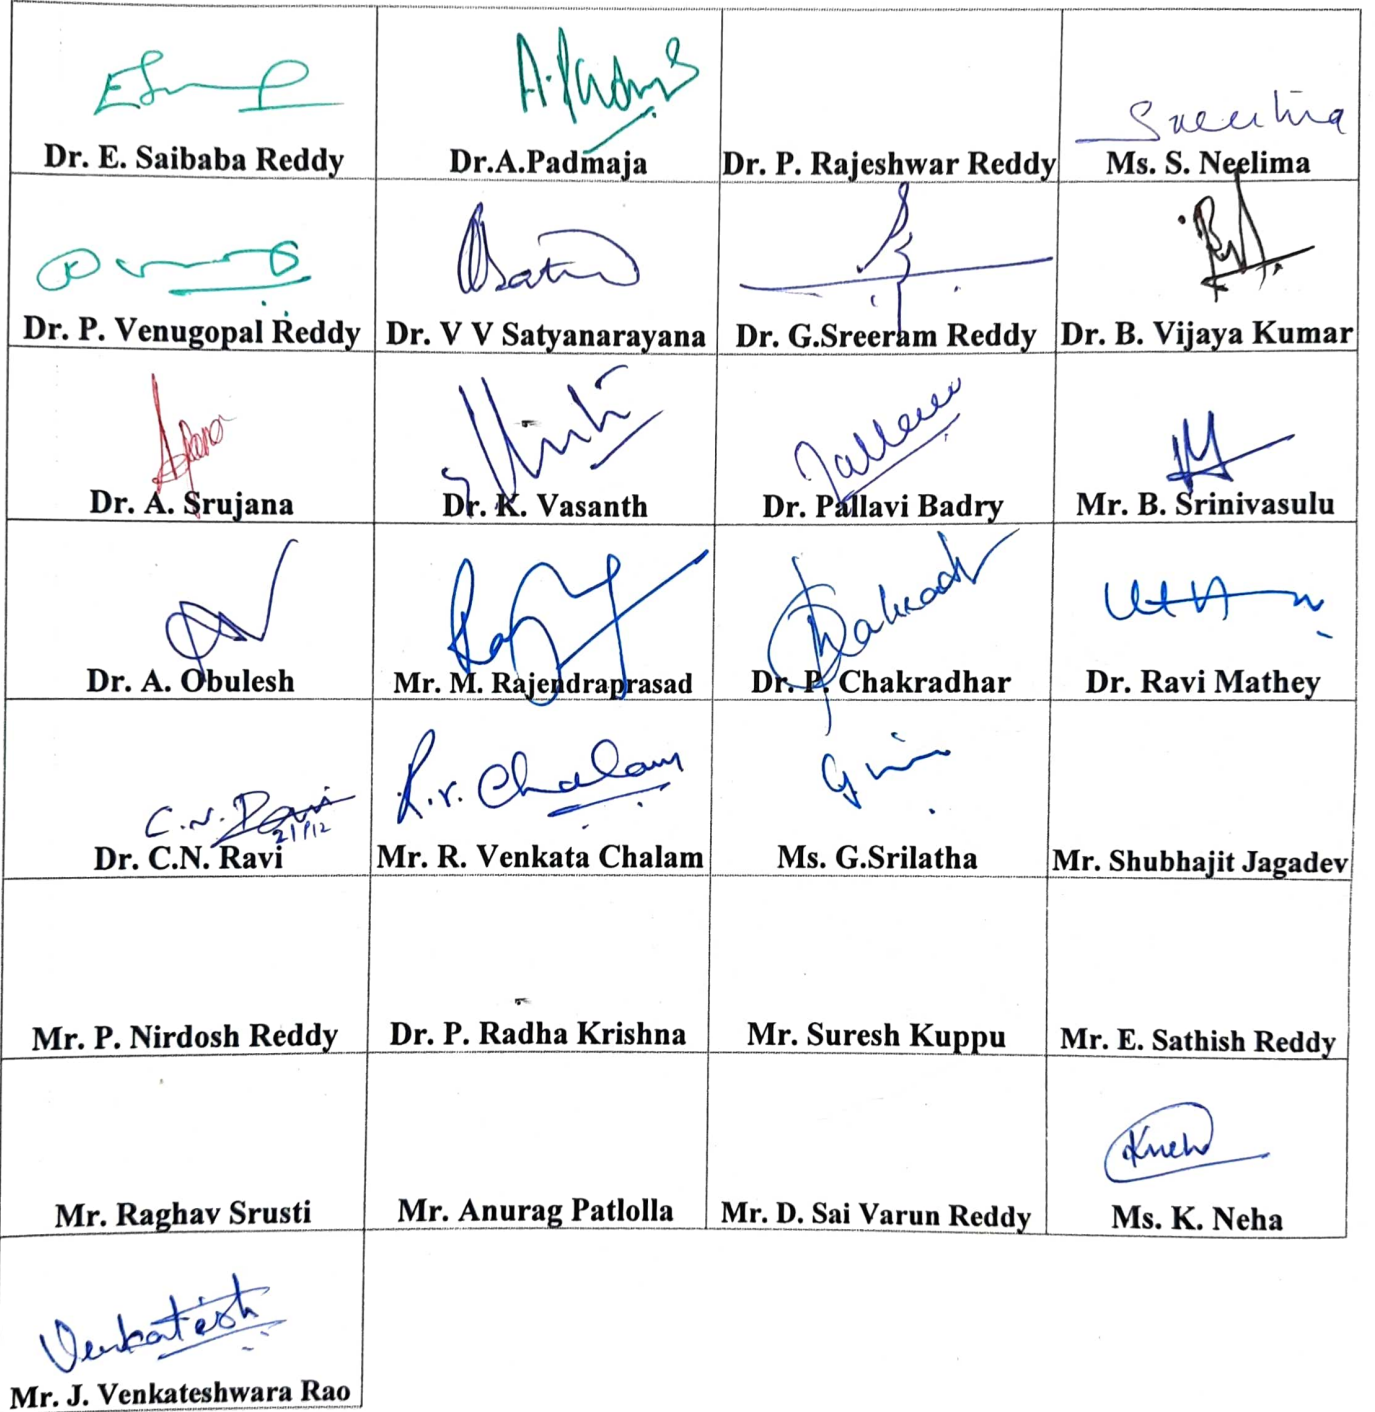 Dr. E. Saibaba Reddy
A.Padmaja
Dr.A.Padmaja
Dr. P. Rajeshwar Reddy
Ms. S. Neelima
Dr. P. Venugopal Reddy
Dr. V V Satyanarayana
Dr. G.Sreeram Reddy
Dr. B. Vijaya Kumar
Dr. A. Srujana
Dr. K. Vasanth
Dr. Pallavi Badry
Mr. B. Srinivasulu
Dr. A. Obulesh
Mr. M. Rajendraprasad
Dr. P. Chakradhar
Dr. Ravi Mathey
C.N. Ravi
Dr. C.N. Ravi
R.V. Chalam
Mr. R. Venkata Chalam
Ms. G.Srilatha
Mr. Shubhajit Jagadev
Mr. P. Nirdosh Reddy
Dr. P. Radha Krishna
Mr. Suresh Kuppu
Mr. E. Sathish Reddy
Mr. Raghav Srusti
Mr. Anurag Patlolla
Mr. D. Sai Varun Reddy
KNeha
Ms. K. Neha
Venkatesh
Mr. J. Venkateshwara Rao